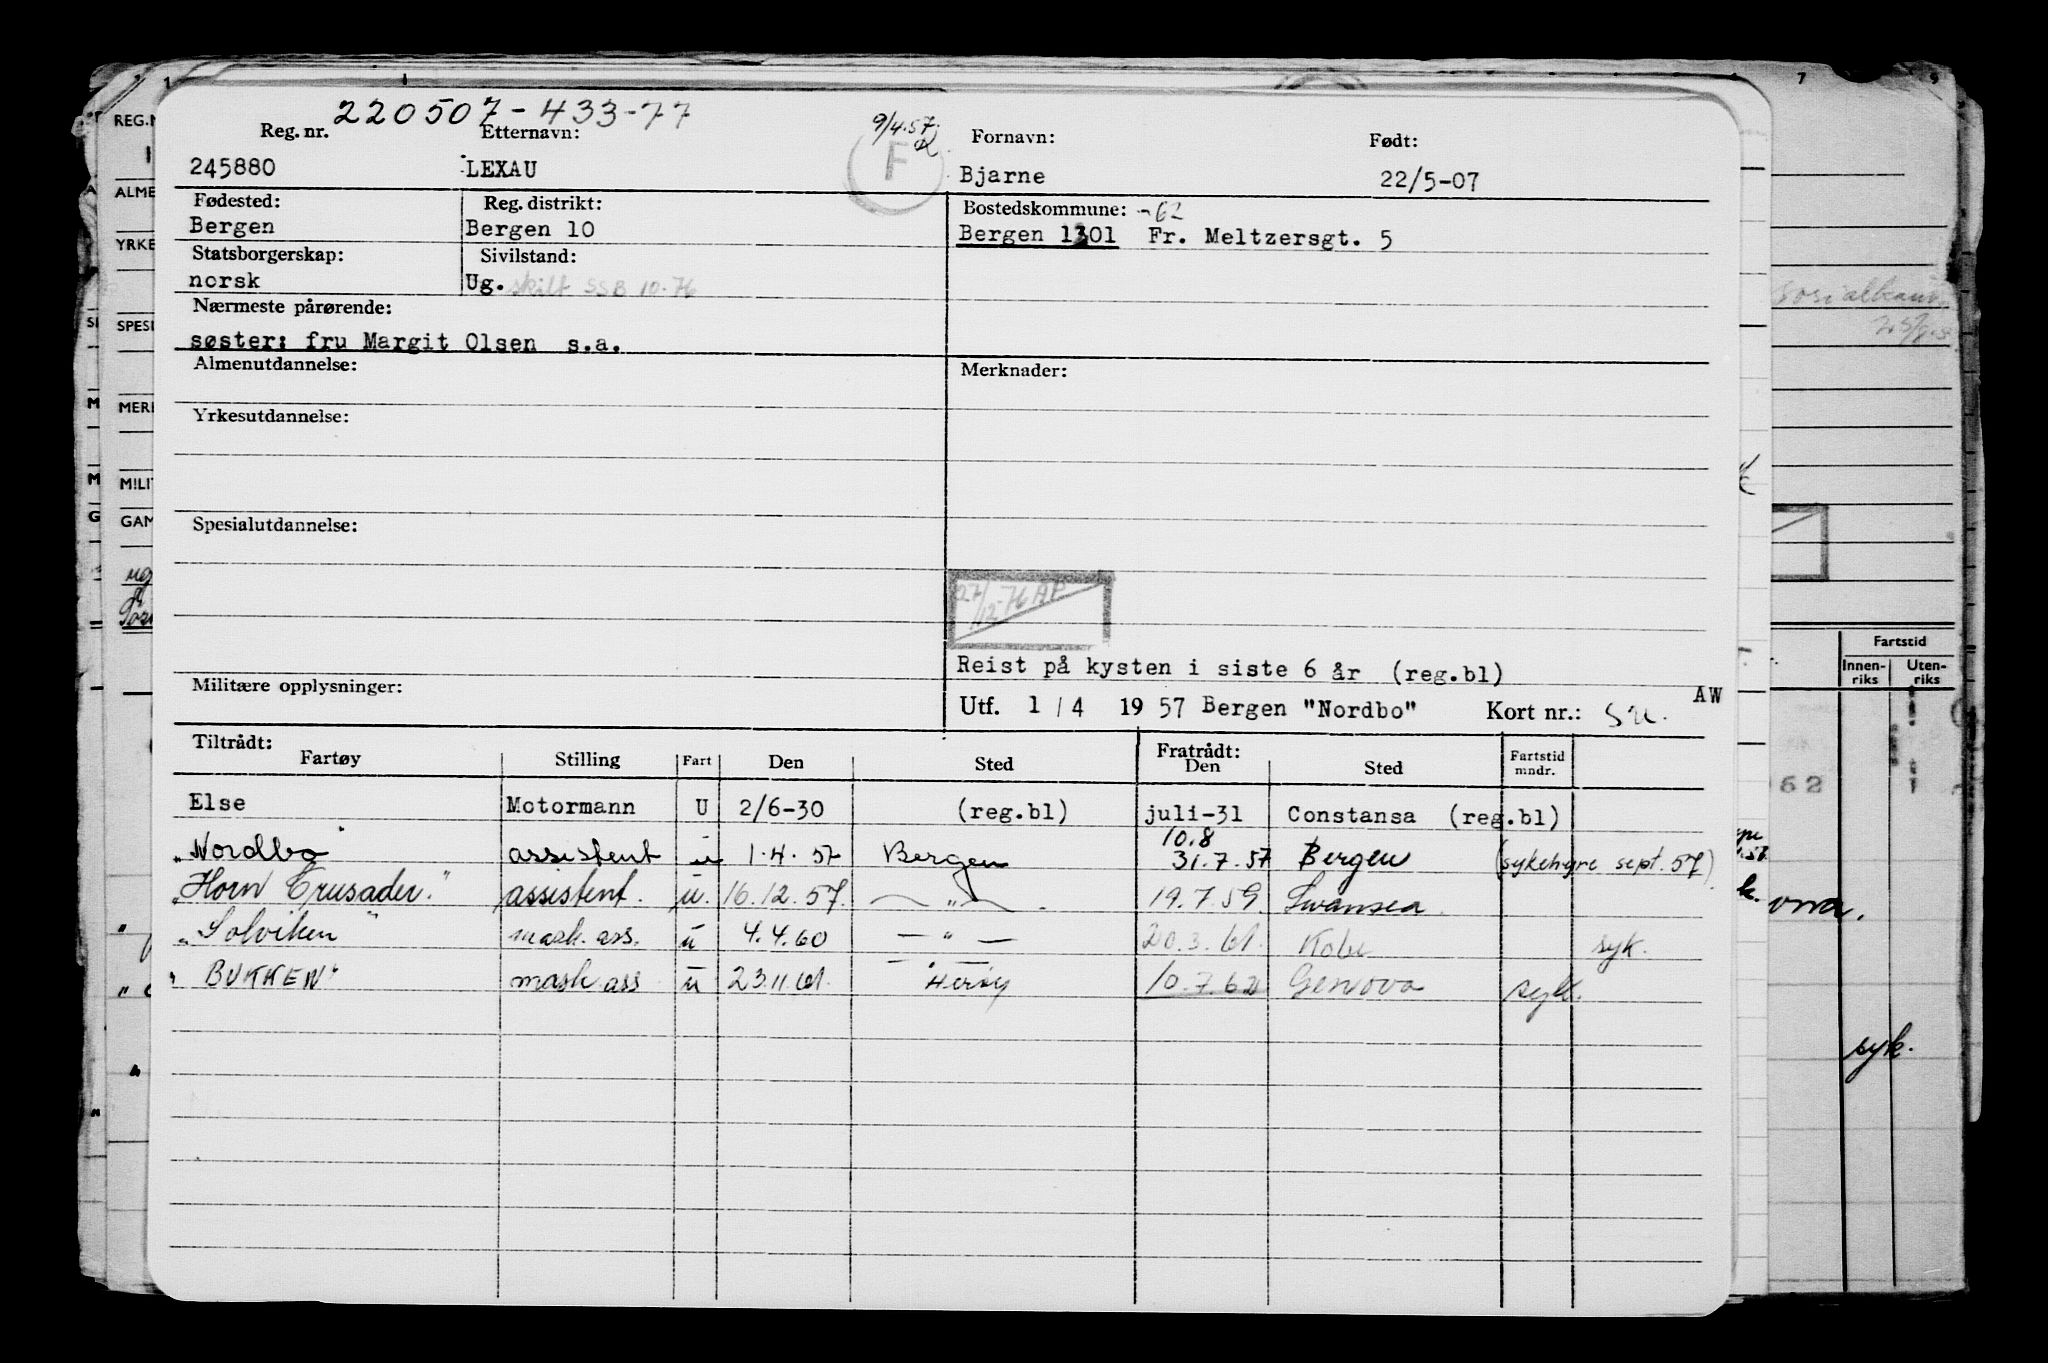 220507-433-77
9/4.57.
Reg. nr. Etternavn: Fornavn: Født:
245880 LEXAU F Bjarne 22/5-07
Fødested: Reg. distrikt: Bostedskommune: -62
Bergen Bergen 10 Bergen 1301 Fr. Meltzersgt. 5
Statsborgerskap: Sivilstand:
norsk Ug. skilt SSB 10.76
Nærmeste pårørende:
søster: fru Margit Olsen s.a.
Almenutdannelse: Merknader:
Yrkesutdannelse:
Spesialutdannelse:
27/12-76 AP
Reist på kysten i siste 6 år (reg.bl)
Militære opplysninger: AW
Utf. 1/4 1957 Bergen "Nordbo" Kort nr.:
Tiltrådt: Fratrådt:
Fartøy Stilling Fart Den Sted Den Sted Fartstid mndr.
Else Motormann U 2/6-30 (reg.bl) juli-31 Constansa (reg.bl)
10.8
"Nordbo" assistent u 1.4.57 Bergen 31.7.57 Bergen (sykehyre sept. 57)
"Horn Crusader." assistent. u. 16.12.57. — " — . 19.7.59. Swansea.
"Solviken" mask. ass. u 4.4.60 — " — 20.3.61. Kobe syk.
"BUKKEN" mask ass u 23.11.61. Herøy 10.7.62 Genova syk.
REG.N
ALME
YRKE
SPESI
MERK
MILIT
GAM
Fartstid
Innen-
riks
Uten-
riks
62
syk.